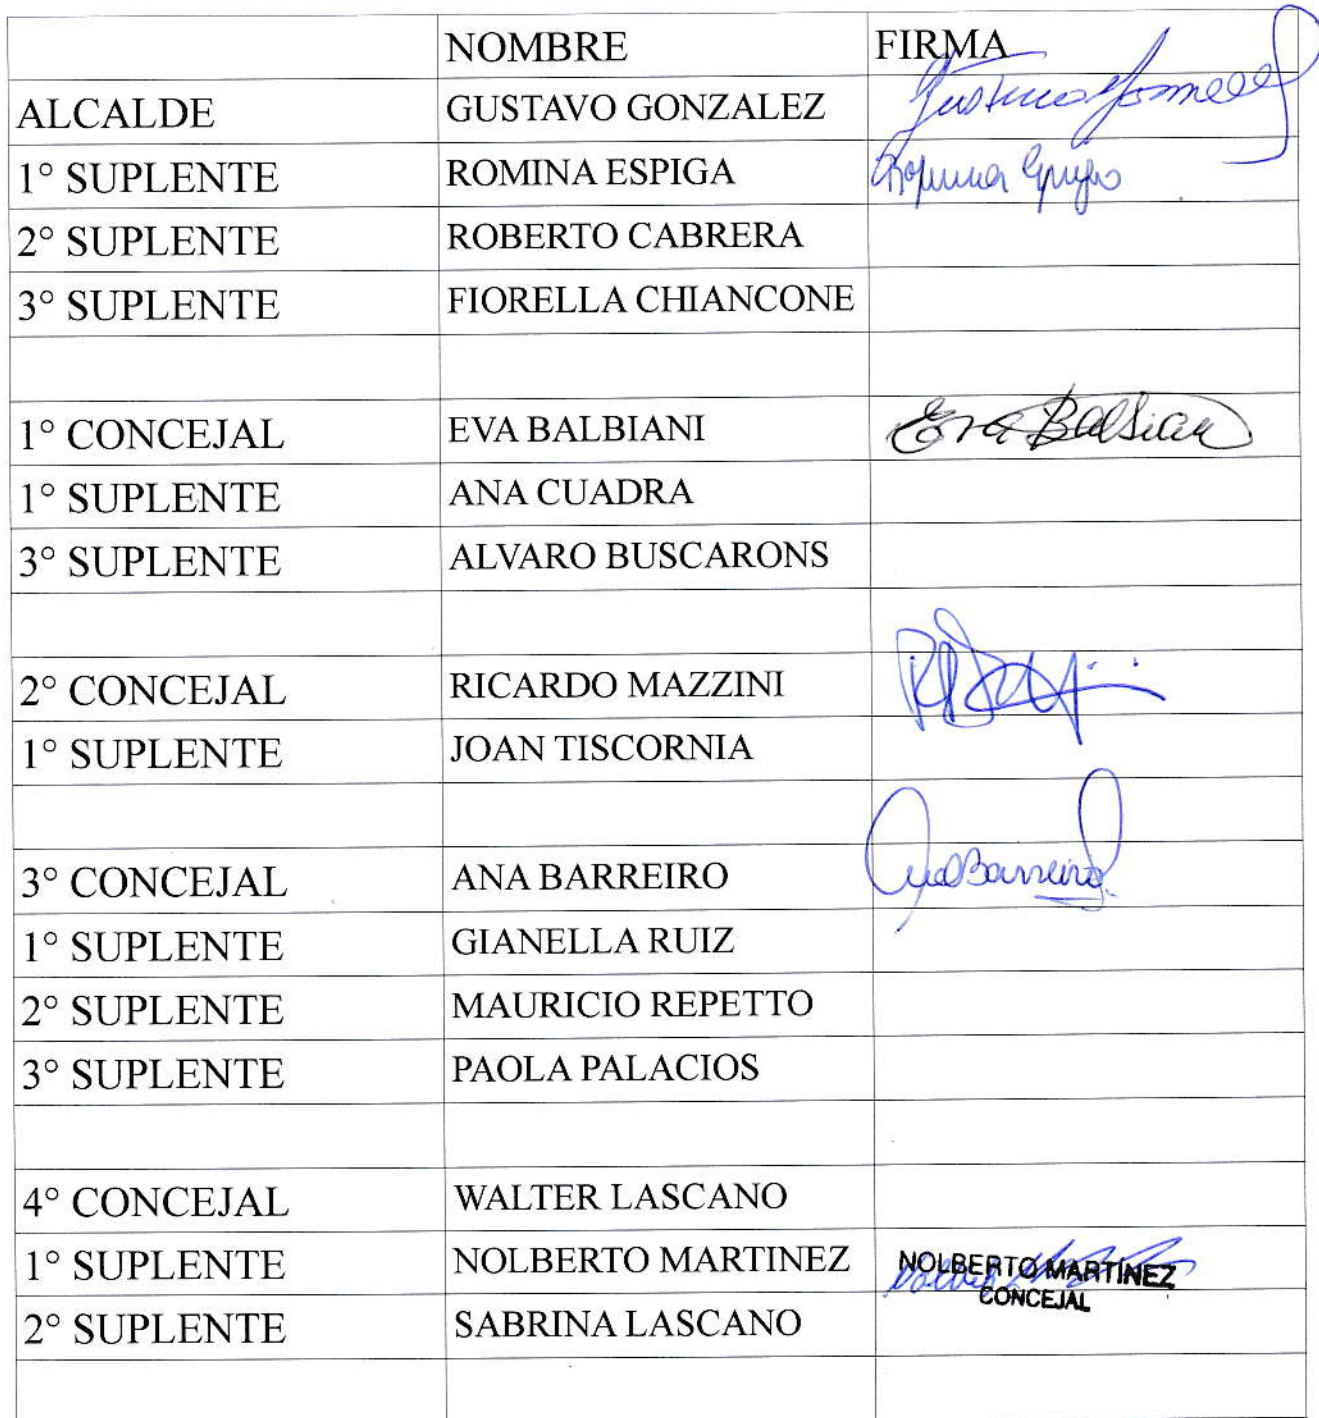 NOMBRE FIRMA
ALCALDE GUSTAVO GONZALEZ Gustavo Gonzalez
1° SUPLENTE ROMINA ESPIGA Romina Espiga
2° SUPLENTE ROBERTO CABRERA
3° SUPLENTE FIORELLA CHIANCONE
1° CONCEJAL EVA BALBIANI Eva Balbiani
1° SUPLENTE ANA CUADRA
3° SUPLENTE ALVARO BUSCARONS
2° CONCEJAL RICARDO MAZZINI
1° SUPLENTE JOAN TISCORNIA
3° CONCEJAL ANA BARREIRO Ana Barreiro
1° SUPLENTE GIANELLA RUIZ
2° SUPLENTE MAURICIO REPETTO
3° SUPLENTE PAOLA PALACIOS
4° CONCEJAL WALTER LASCANO
1° SUPLENTE NOLBERTO MARTINEZ NOLBERTO MARTÍNEZ
CONCEJAL
2° SUPLENTE SABRINA LASCANO